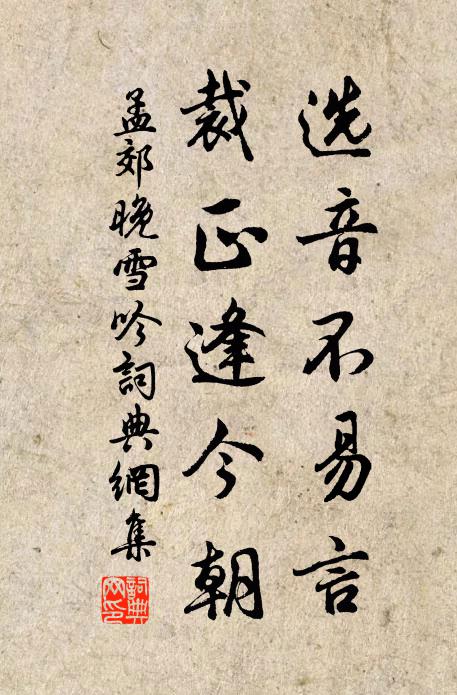 选音不易言
裁正逢今朝
孟郊晚雪吟詞典網集
詞典网印